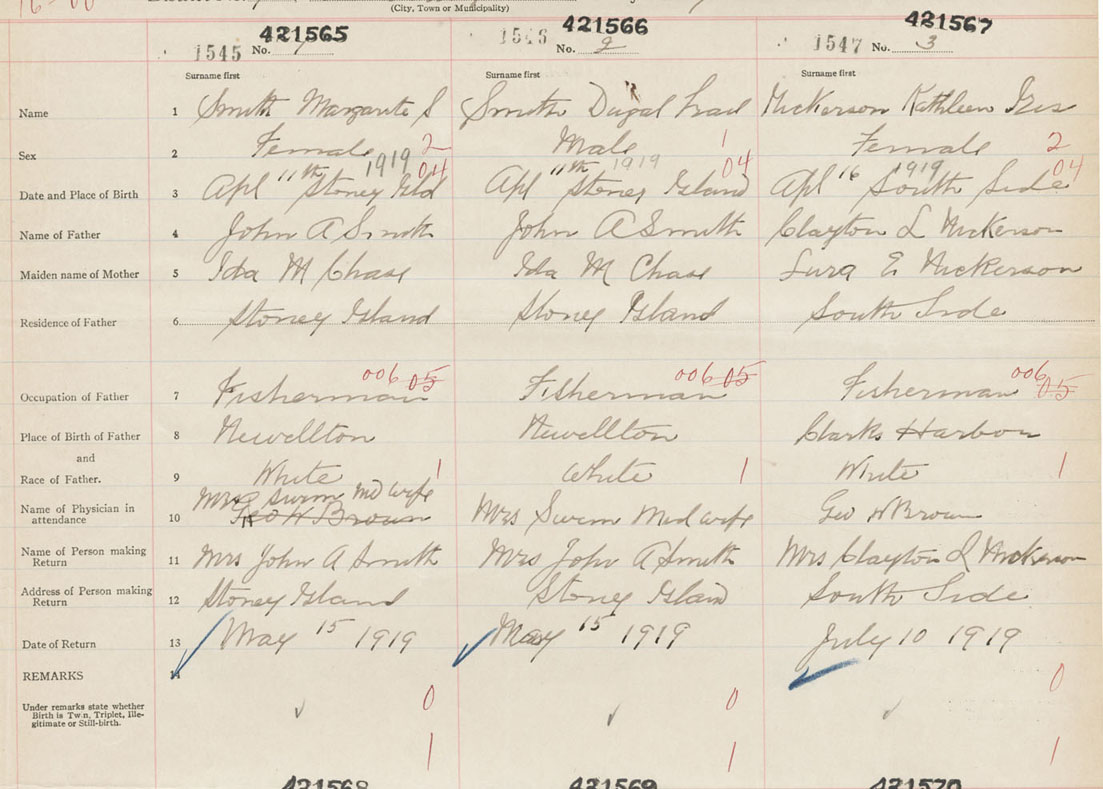 (City, Town or Municipality)
421565 421566 421567
1545 No. 1 1546 No. 2 1547 No. 3
Surname first Surname first Surname first
Name 1 Smith Margarite S Smith Dugal Nickerson Kathleen Iris
Sex 2 Female 2 Male 1 Female 2
1919 04 1919 04 1919 04
Date and Place of Birth 3 Apl 11th Stoney Ild Apl 11th Stoney Island Apl 16 South Side
Name of Father 4 John A Smith John A Smith Clayton L Nickerson
Maiden name of Mother 5 Ida M Chase Ida M Chase Lura E Nickerson
Residence of Father 6 Stoney Island Stoney Island South Side
006 05 006 05 006 05
Occupation of Father 7 Fisherman Fisherman Fisherman
Place of Birth of Father 8 Newellton Newellton Clarks Harbour
and
Race of Father. 9 White 1 White 1 White 1
Mrs Swim Mid wife
Name of Physician in
attendance 10 Geo W Brown Mrs Swim Mid wife Geo W Brown
Name of Person making
Return 11 Mrs John A Smith Mrs John A Smith Mrs Clayton L Nickerson
Address of Person making
Return 12 Stoney Island Stoney Island South Side
Date of Return 13 May 15 1919 May 15 1919 July 10 1919
REMARKS 14
0 0 0
Under remarks state whether
Birth is Twin, Triplet, Ille-
gitimate or Still-birth.
1 1 1
421568 421569 421570